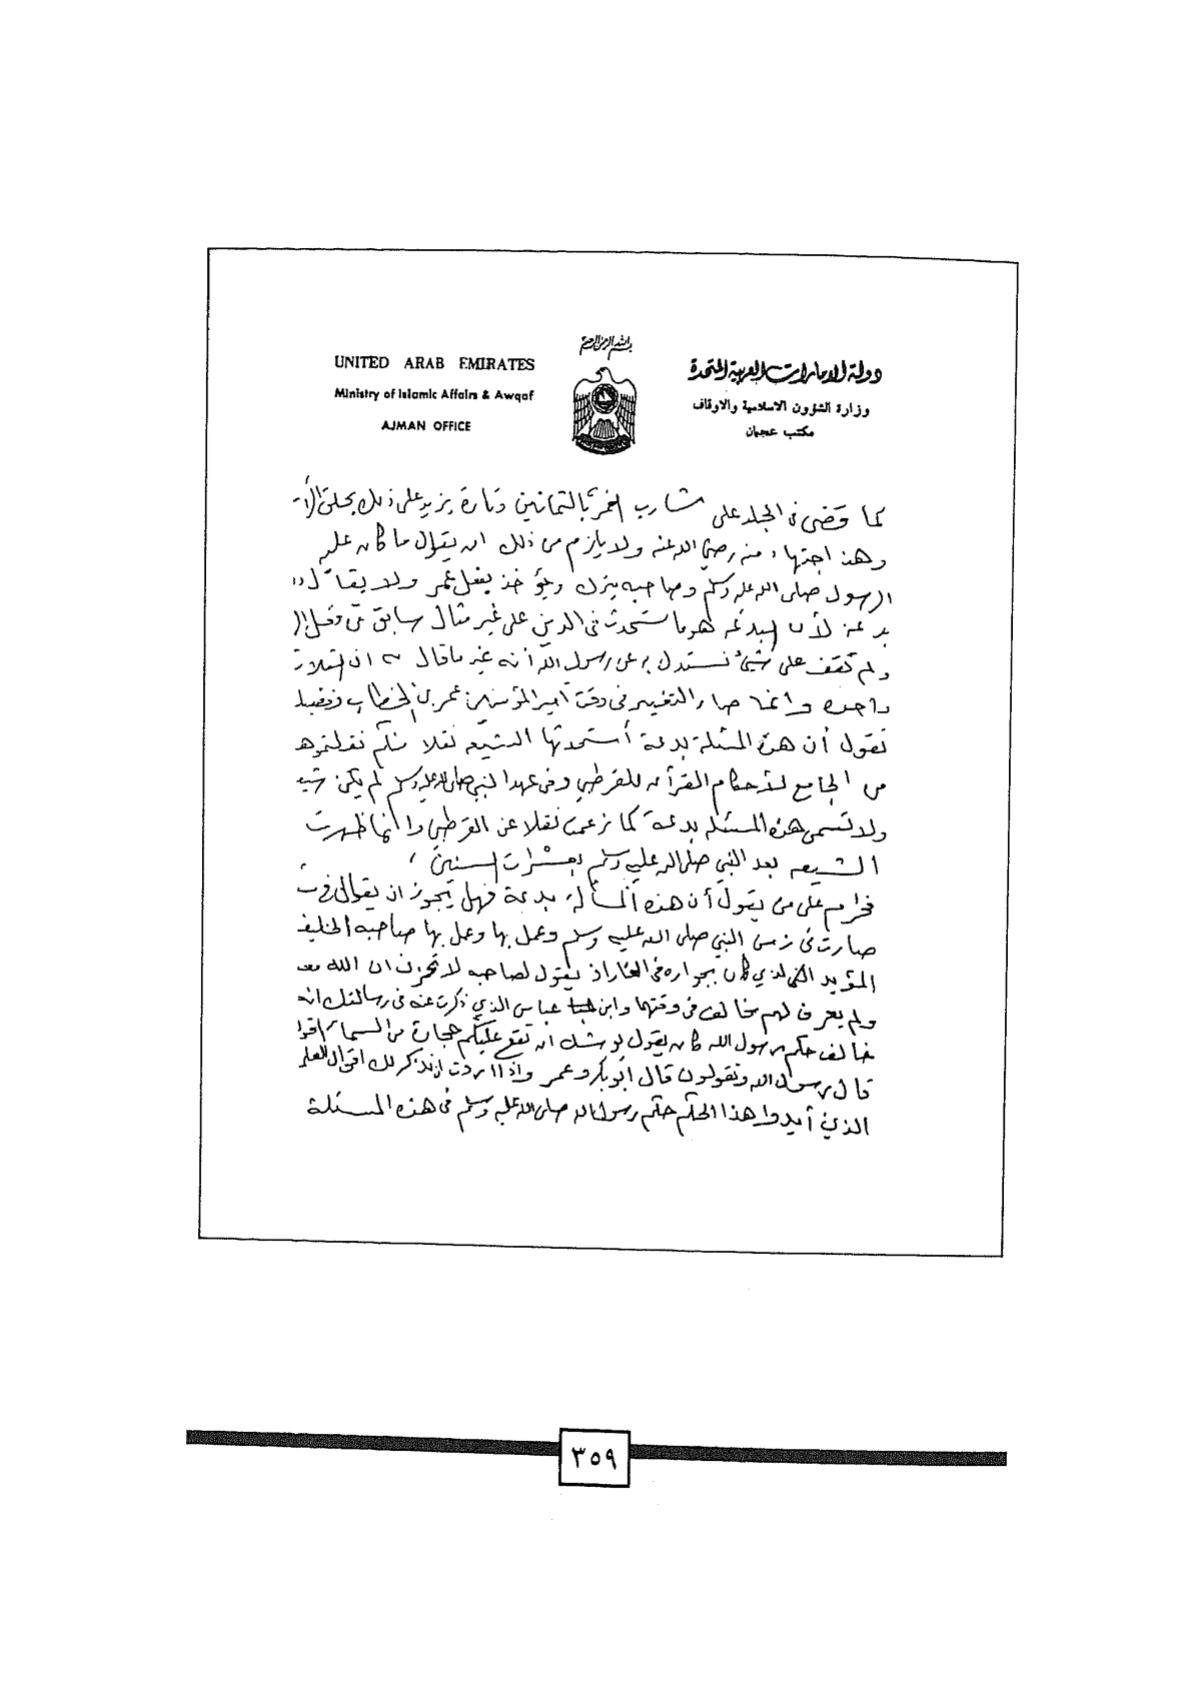 بسم الله الرحمن الرحيم
UNITED ARAB EMIRATES
Ministry of Islamic Affairs & Awqaf
AJMAN OFFICE
دولة الامارات العربية المتحدة
وزارة الشؤون الاسلامية والاوقاف
مكتب عجمان
كما قضى في الجلد على شارب الخمر بالثمانين وتارة يزيد على ذلك بحلق
وهذا اجتهاد منه رضي الله عنه ولا يلزم من ذلك ان يقال ما كان عليه
الرسول صلى الله عليه وسلم وصاحبه يترك ويؤخذ بفعل عمر ولا يقال
بدعة لأن البدعة هو ما استحدث في الدين على غير مثال سابق
ولم نقف على شئ نستدل به عن رسول الله أنه غير ما قال ان الثلاث
واحدة وانما صار التغيير في وقت أمير المؤمنين عمر بن الخطاب
تقول أن هذه المسئلة بدعة أستحدثها الشيعة نقلا منكم نقلتموه
من الجامع لأحكام القرآن للقرطبي وفي عهد النبي صلى الله عليه وسلم لم يكن
ولا تسمى هذه المسئلة بدعة كما زعمت نقلا عن القرطبي وانما ظهرت
الشيعه بعد النبي صلى الله عليه وسلم بعشرات السنين ،
فحرام على من يقول أن هذه المسألة بدعة فهل يجوز ان يقال
صارت في زمن النبي صلى الله عليه وسلم وعمل بها وعمل بها صاحبه الخليفة
المؤيد الذي كان بجواره في الغار اذ يقول لصاحبه لا تحزن ان الله معنا
ولم يعرف لهم مخالف في وقتهما وابن عباس الذي ذكرت عنه في رسالتك انه
خالف حكم رسول الله كان يقول يوشك ان تقع عليكم حجارة من السماء اقول
قال رسول الله وتقولون قال أبو بكر وعمر واذا اردت ان نذكر لك اقوال العلماء
الذين أيدوا هذا الحكم حكم رسول الله صلى الله عليه وسلم في هذه المسئلة
٣٥٩